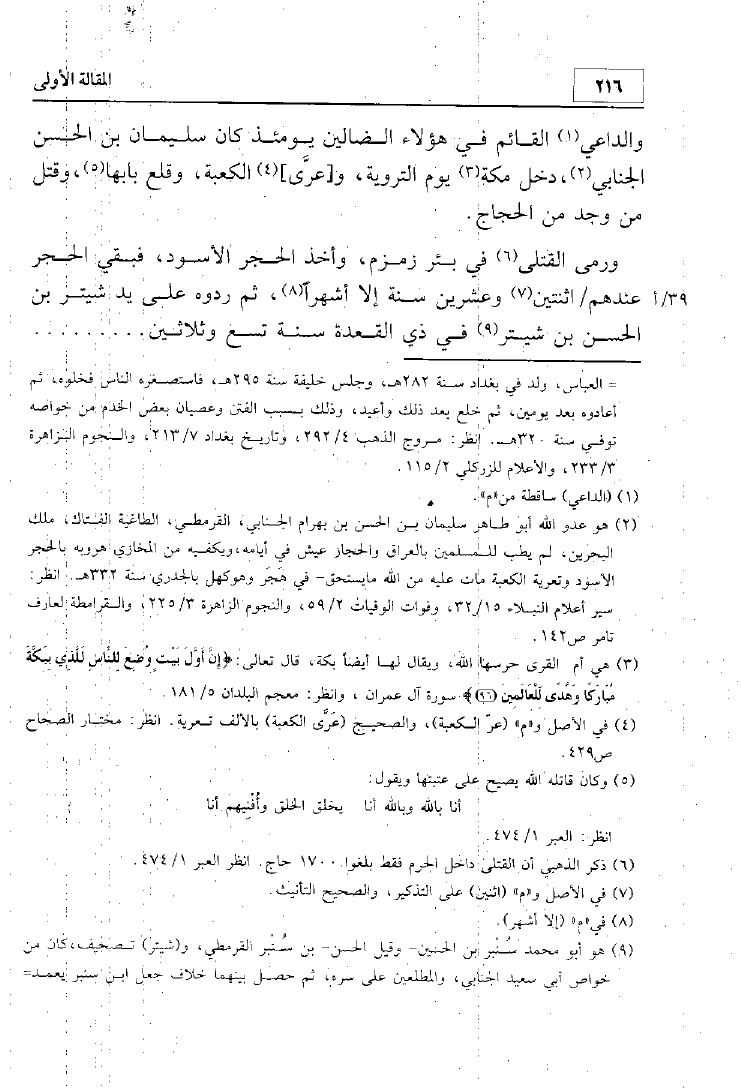 ٢١٦ المقالة الأولى
والداعي(١) القائم في هؤلاء الضالين يومئذ كان سليمان بن الحسن
الجنابي(٢)، دخل مكة(٣) يوم التروية، و[عرَّى](٤) الكعبة، وقلع بابها(٥)، وقتل
من وجد من الحجاج.
ورمى القتلى(٦) في بئر زمزم، وأخذ الحجر الأسود، فبقي الحجر
٣٩/أ عندهم/ اثنتين(٧) وعشرين سنة إلا أشهراً(٨)، ثم ردوه على يد شيتر بن
الحسن بن شيتر(٩) في ذي القعدة سنة تسع وثلاثين.........
= العباس، ولد في بغداد سنة ٢٨٢هـ، وجلس خليفة سنة ٢٩٥هـ، فاستصغره الناس فخلوه، ثم
أعادوه بعد يومين، ثم خلع بعد ذلك وأعيد، وذلك بسبب الفتن وعصيان بعض الخدم من خواصه
توفي سنة ٣٢٠هـ. انظر: مروج الذهب ٢٩٢/٤، وتاريخ بغداد ٢١٣/٧، والنجوم الزاهرة
٢٣٣/٣، والأعلام للزركلي ١١٥/٢.
(١) (الداعي) ساقطة من«م».
(٢) هو عدو الله أبو طاهر سليمان بن الحسن بن بهرام الجنابي، القرمطي، الطاغية الفتاك، ملك
البحرين، لم يطب للمسلمين بالعراق والحجاز عيش في أيامه،ويكفيه من المخازي هروبه بالحجر
الأسود وتعرية الكعبة مات عليه من الله مايستحق- في هَجَر وهوكهل بالجدري سنة ٣٣٢هـ. انظر:
سير أعلام النبلاء ٣٢/١٥، وفوات الوفيات ٥٩/٢، والنجوم الزاهرة ٢٢٥/٣، والقرامطة لعارف
تامر ص١٤٢.
(٣) هي أم القرى حرسها الله، ويقال لها أيضاً بكة، قال تعالى: ﴿إِنَّ أَوَّلَ بَيْتٍ وُضِعَ لِلنَّاسِ لَلَّذِي بِبَكَّةَ
مُبَارَكًا وَهُدًى لِّلْعَالَمِينَ (٩٦)﴾ سورة آل عمران ، وانظر: معجم البلدان ١٨١/٥.
(٤) في الأصل و«م» (عرّ الكعبة)، والصحيح (عَرَّى الكعبة) بالألف تعرية. انظر: مختار الصحاح
ص٤٢٩.
(٥) وكان قاتله الله يصيح على عتبتها ويقول:
أنا بالله وبالله أنا يخلق الخلق وأُفْنِيهم أنا
انظر: العبر ٤٧٤/١.
(٦) ذكر الذهبي أن القتلى داخل الحرم فقط بلغوا ١٧٠٠ حاج. انظر العبر ٤٧٤/١.
(٧) في الأصل و«م» (اثنين) على التذكير، والصحيح التأنيث.
(٨) في«م» (إلا أشهر).
(٩) هو أبو محمد سُنْبَر بن الحسن- وقيل الحسن- بن سُنْبَر القرمطي، و(شيتر) تصحيف،كان من
خواص أبي سعيد الجنابي، والمطلعين على سره، ثم حصل بينهما خلاف جعل ابن سنبر يعمد=